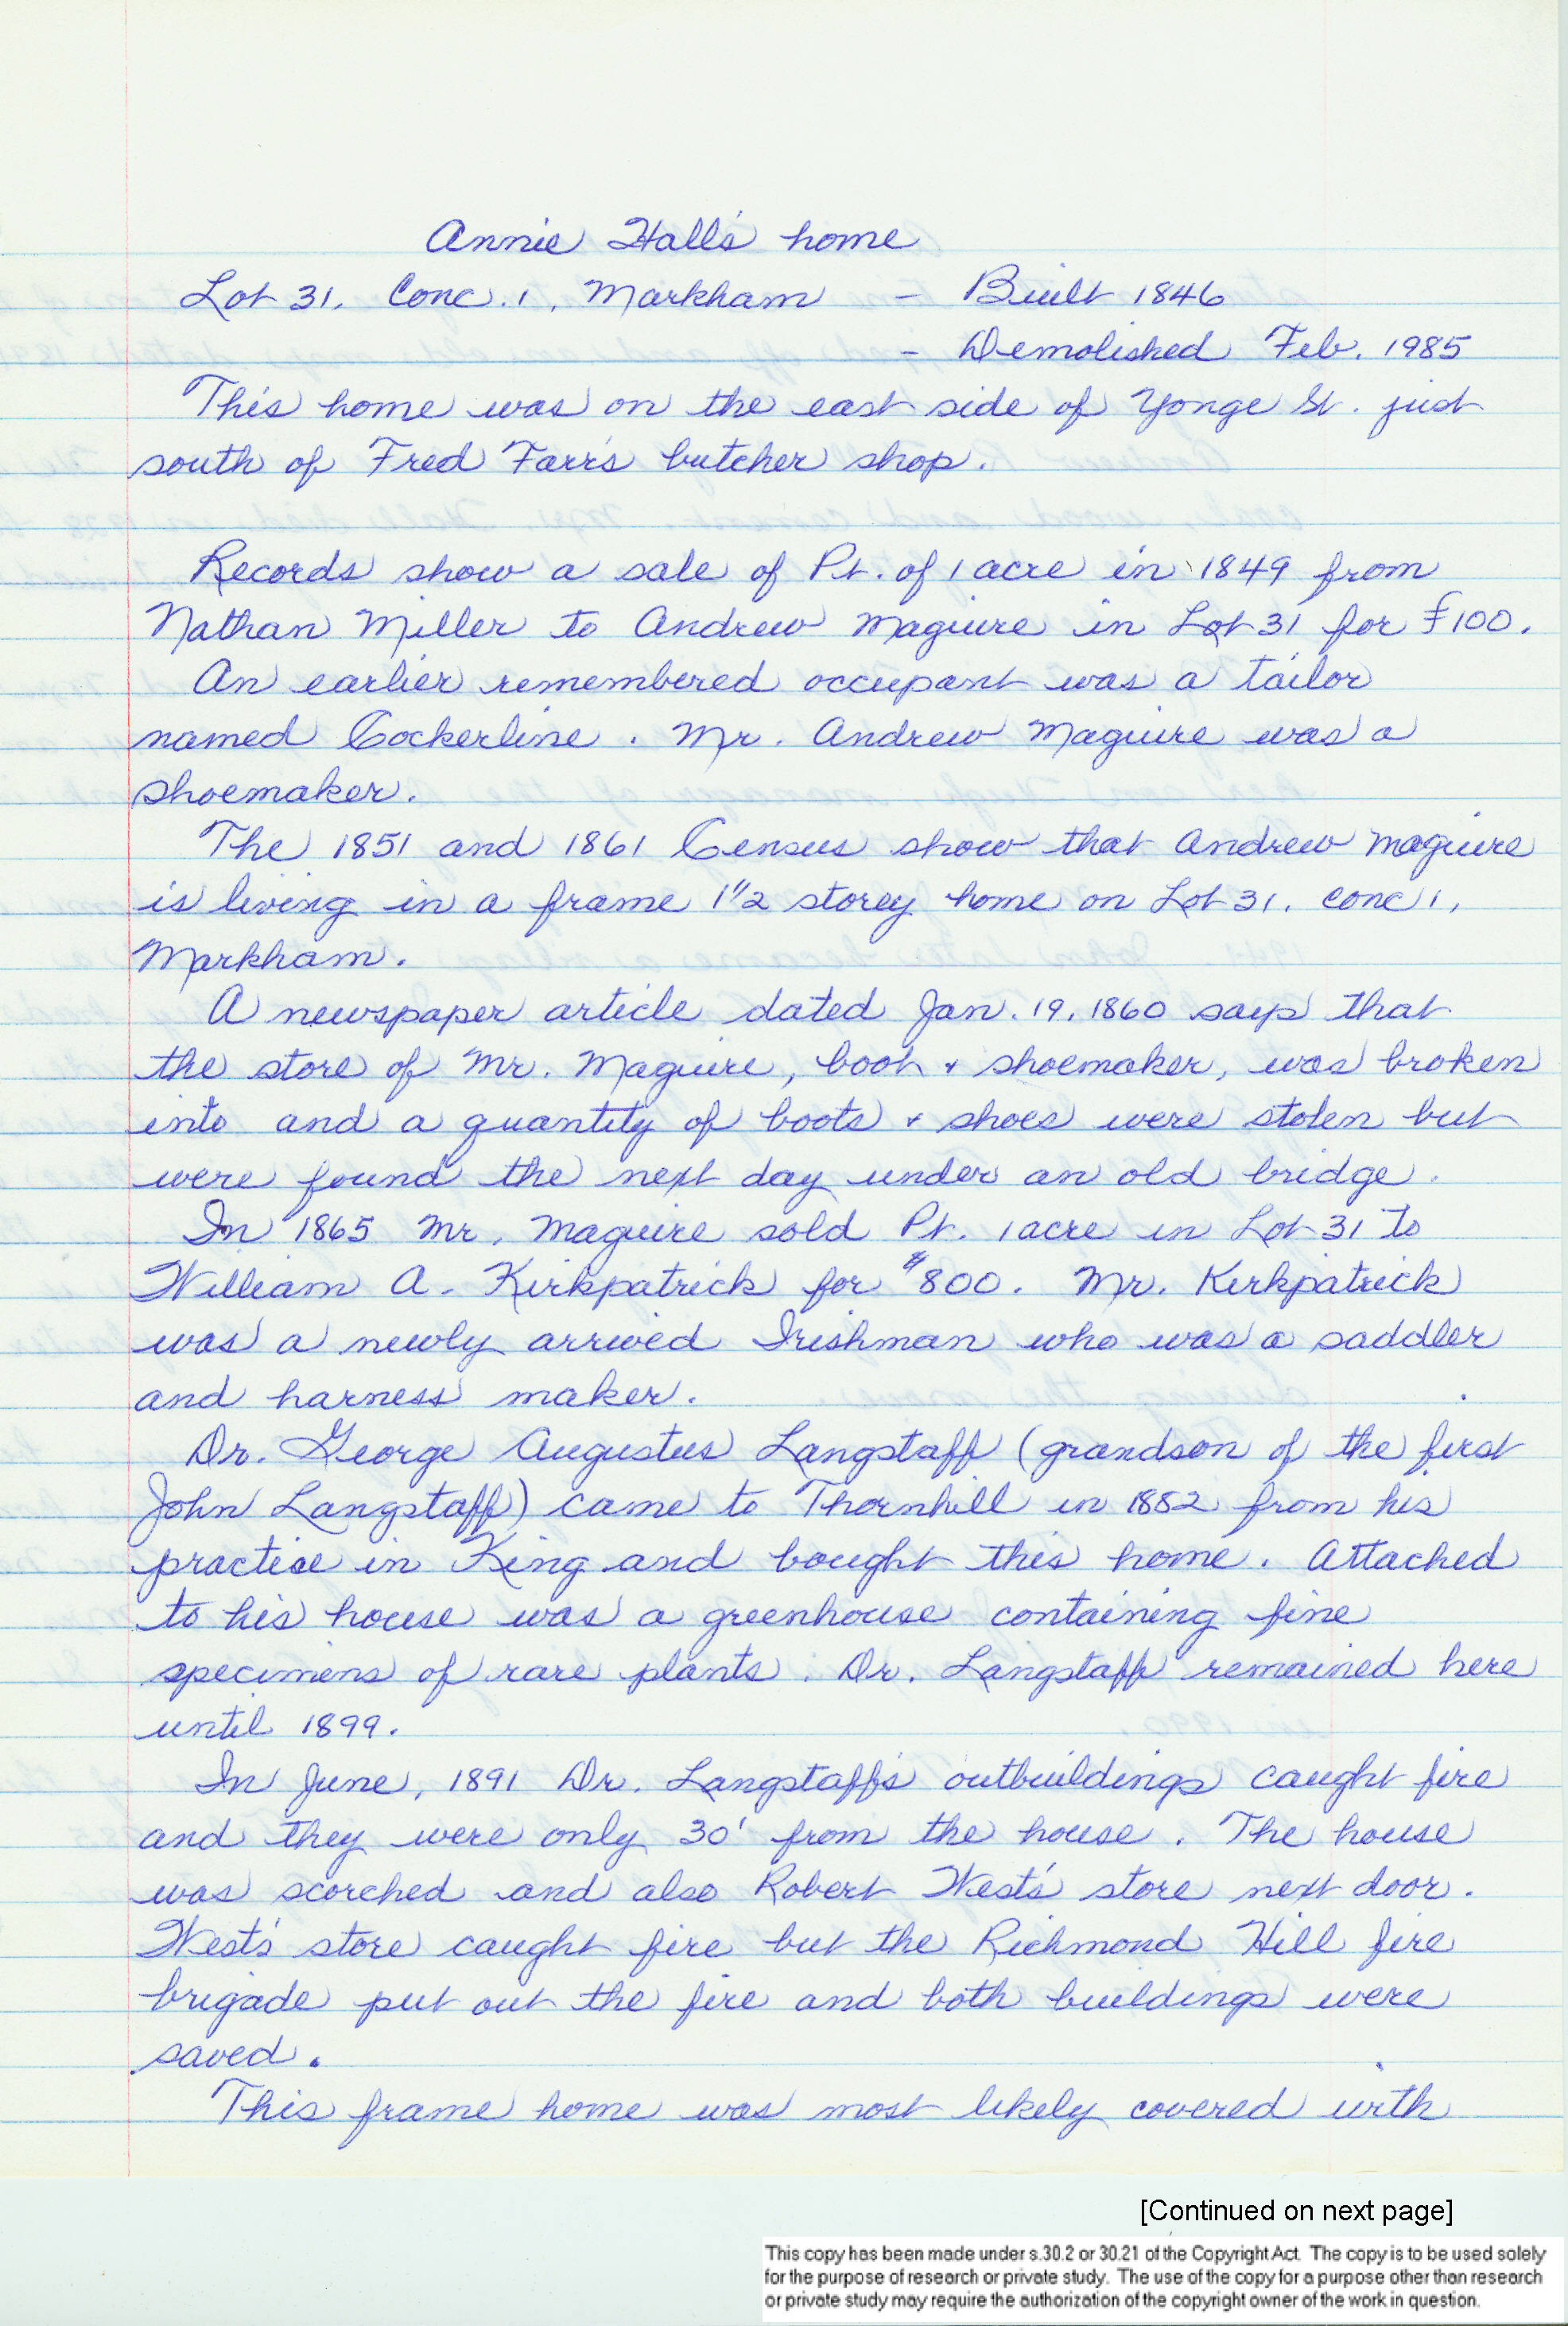 Annie Hall's home
Lot 31, Conc. 1, Markham - Built 1846
- Demolished Feb. 1985
This home was on the east side of Yonge St. just
south of Fred Farr's butcher shop.
Records show a sale of Pt. of 1 acre in 1849 from
Nathan Miller to Andrew Maguire in Lot 31 for £100.
An earlier remembered occupant was a tailor
named Cockerline. Mr. Andrew Maguire was a
shoemaker.
The 1851 and 1861 Census show that Andrew Maguire
is living in a frame 1 1/2 storey home on Lot 31, Conc 1,
Markham.
A newspaper article dated Jan. 19, 1860 says that
the store of Mr. Maguire, boot & shoemaker, was broken
into and a quantity of boots & shoes were stolen but
were found the next day under an old bridge.
In 1865 Mr. Maguire sold Pt. 1 acre in Lot 31 to
William A. Kirkpatrick for $800. Mr. Kirkpatrick
was a newly arrived Irishman who was a saddler
and harness maker.
Dr. George Augustus Langstaff (grandson of the first
John Langstaff) came to Thornhill in 1882 from his
practise in King and bought this home. Attached
to his house was a greenhouse containing fine
specimens of rare plants. Dr. Langstaff remained here
until 1899.
In June, 1891 Dr. Langstaff's outbuildings caught fire
and they were only 30' from the house. The house
was scorched and also Robert West's store next door.
West's store caught fire but the Richmond Hill fire
brigade put out the fire and both buildings were
saved.
This frame home was most likely covered with
[Continued on next page]
This copy has been made under s.30.2 or 30.21 of the Copyright Act. The copy is to be used solely
for the purpose of research or private study. The use of the copy for a purpose other than research
or private study may require the authorization of the copyright owner of the work in question.